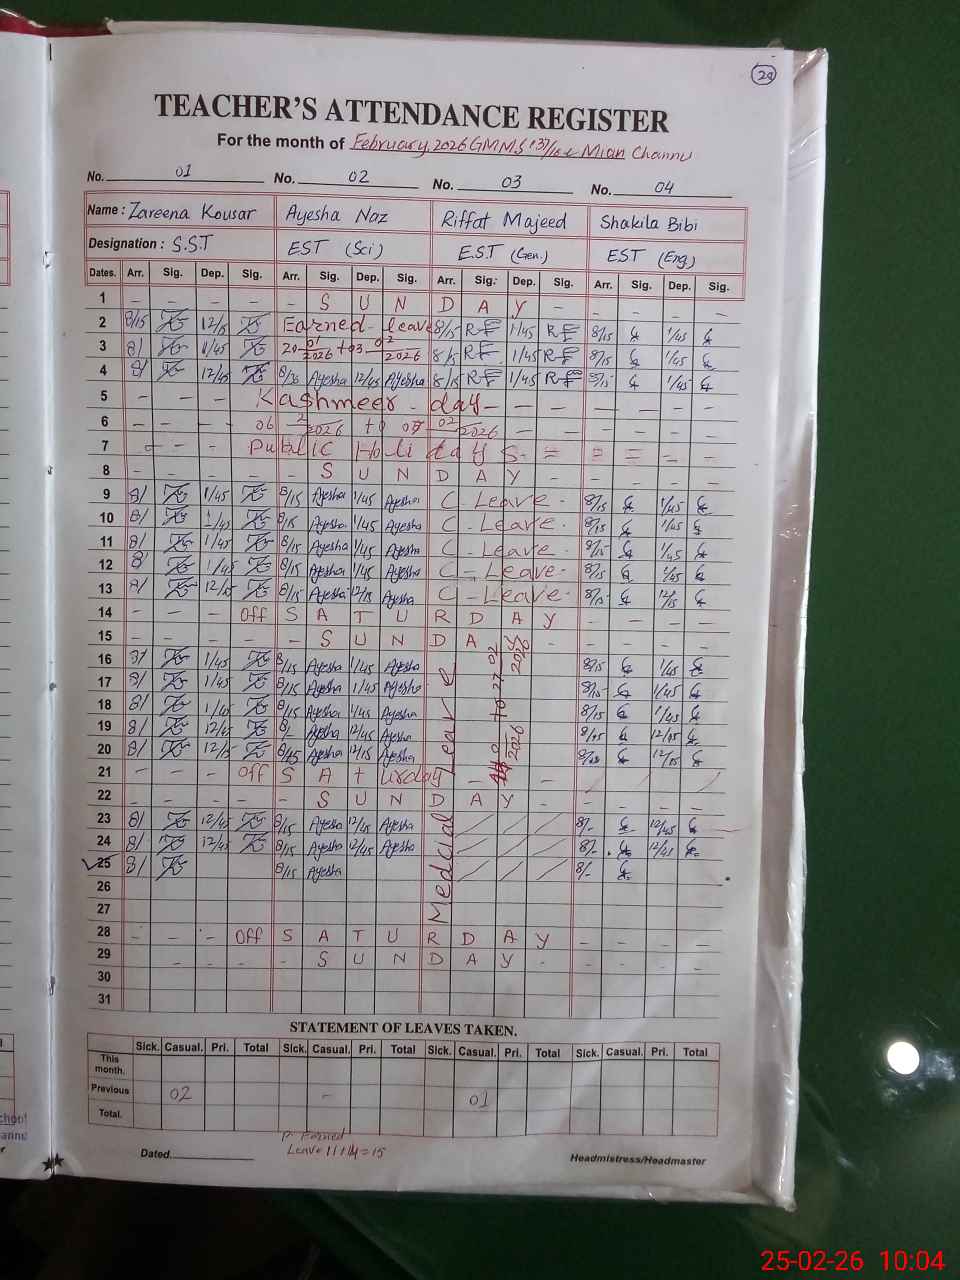 29
TEACHER'S ATTENDANCE REGISTER
For the month of February 2026 GMMS 137/10 Mian Channu
No. 01 No. 02 No. 03 No. 04
Name : Zareena Kousar Ayesha Naz Riffat Majeed Shakila Bibi
Designation : S.ST EST (Sci) E.S.T (Gen.) EST (Eng)
Dates. Arr. Sig. Dep. Sig. Arr. Sig. Dep. Sig. Arr. Sig. Dep. Sig. Arr. Sig. Dep. Sig.
1 - - - - - S U N D A Y - - - - -
2 8/15 12/15 Earned leave 8/15 RF 1/45 RF 8/15 1/45
3 8/ 1/45 20 01/2026 to 03 02/2026 8/15 RF 1/45 RF 8/15 1/45
4 8/ 12/45 Ayesha 12/45 Ayesha 8/15 RF 1/45 RF 8/15 1/45
5 Kashmeer day - - - - - -
6 - - - - 06 2/2026 to 07 02/2026 - - - -
7 - - - Public Holidays - = = = - -
8 - - - - - S U N D A Y - - - - -
9 8/ 1/45 8/15 Ayesha 1/45 Ayesha C-Leave - 8/15 1/45
10 8/ 1/45 8/15 Ayesha 1/45 Ayesha C-Leave - 8/15 1/45
11 8/ 1/45 8/15 Ayesha 1/45 Ayesha C-Leave - 8/15 1/45
12 8/ 1/45 8/15 Ayesha 1/45 Ayesha C-Leave - 8/15 1/45
13 8/ 12/15 8/15 Ayesha 12/15 Ayesha C-Leave - 8/15 12/15
14 - - - Off S A T U R D A Y - - - -
15 - - - - - S U N D A Y - - - - -
16 8/ 1/45 8/15 Ayesha 1/45 Ayesha 8/15 1/45
17 8/ 1/45 8/15 Ayesha 1/45 Ayesha 8/15 1/45
18 8/ 1/45 8/15 Ayesha 1/45 Ayesha 8/15 1/45
19 8/ 12/45 8/ Ayesha 12/45 Ayesha 12/45
20 8/ 12/15 8/15 Ayesha 12/15 Ayesha 12/15
21 - - - Off S A t urday - - -
22 - - - - - S U N D A Y - - - - -
23 8/ 12/45 8/15 Ayesha 12/45 Ayesha 8/- 12/45
24 8/ 12/45 8/15 Ayesha 12/45 Ayesha 8/- 12/45
25 8/ 8/15 Ayesha 8/-
26
27
28 - - - Off S A T U R D A Y - - - -
29 - - - - S U N D A Y - - - - -
30
31
Medcial Leave
to 27 02/2026
STATEMENT OF LEAVES TAKEN.
Sick. Casual. Pri. Total Sick. Casual. Pri. Total Sick. Casual. Pri. Total Sick. Casual. Pri. Total
This month.
Previous 02 - 01
Total.
P. Earned
Leave 11+14=15
Dated. Headmistress/Headmaster
25-02-26 10:04